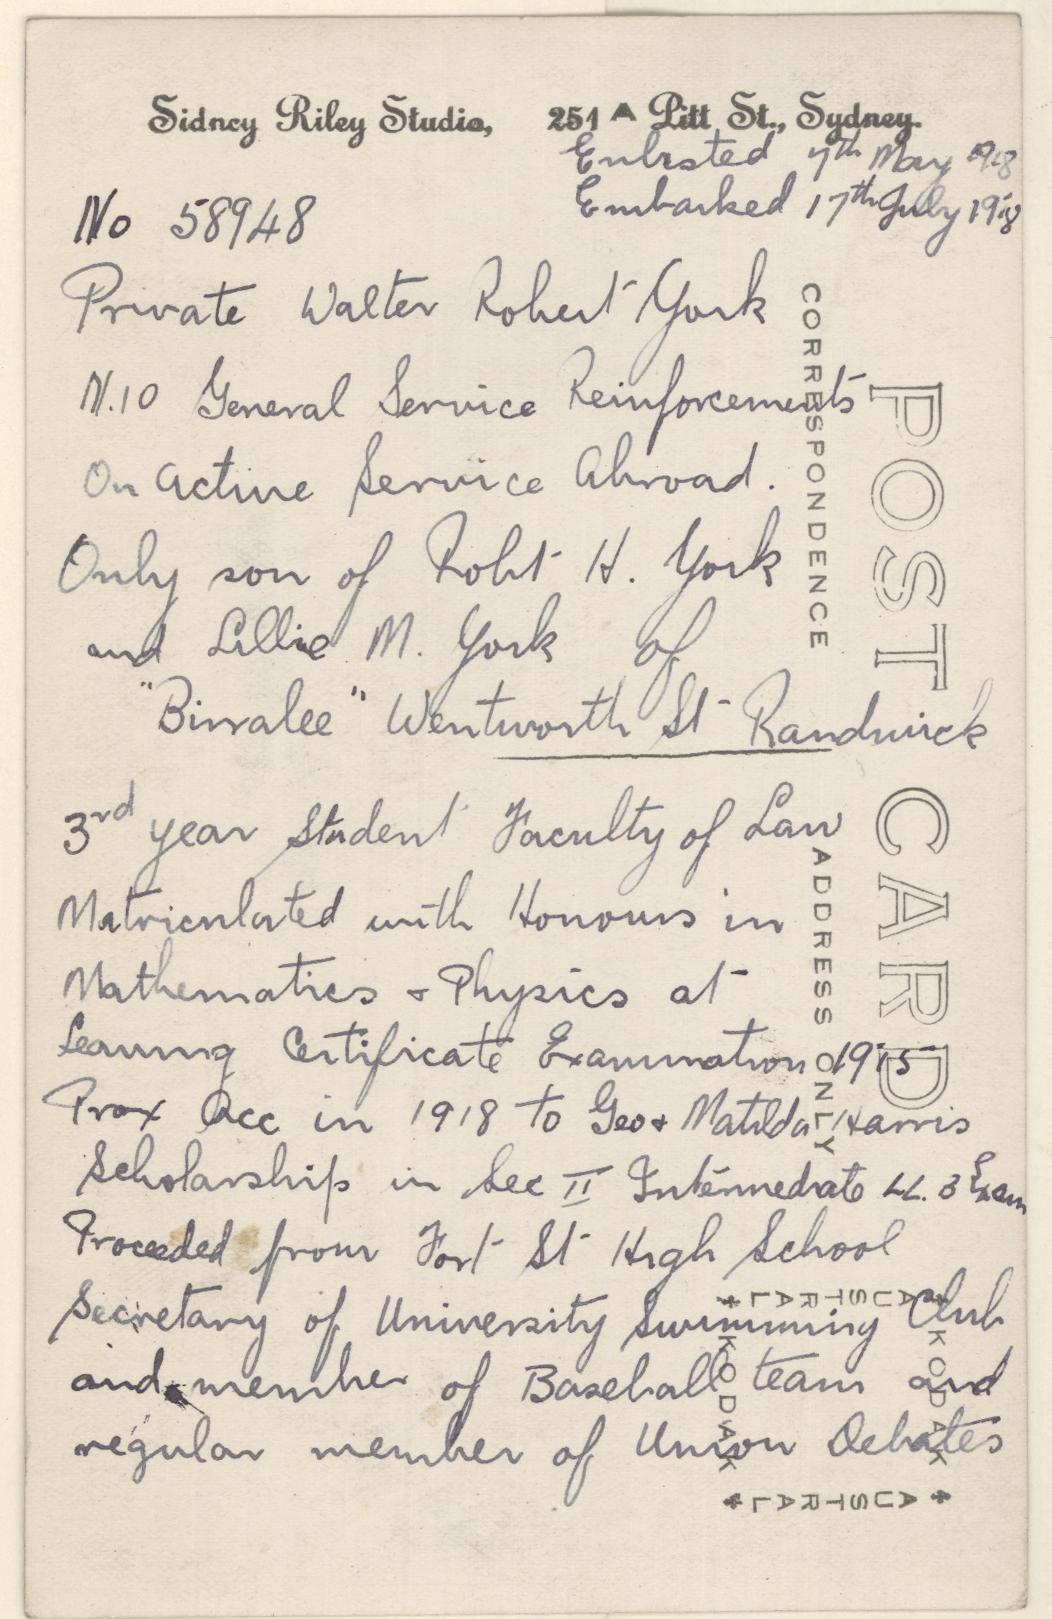 Sidney Riley Studio, 251 A Pitt St., Sydney.
Enlisted 7th May 1918
Embarked 17th July 1918
No 58948
Private Walter Robert York
N.10 General Service Reinforcements
On active Service Abroad.
Only son of Robt H. York
and Lillie M. York of
"Birralee" Wentworth St Randwick
3rd year Student Faculty of Law
Matriculated with Honours in
Mathematics & Physics at
Leaving Certificate Examination 1915
Prox Acc in 1918 to Geo & Matilda Harris
Scholarship in Sec II Intermediate LL.B Exam
Proceeded from Fort St High School
Secretary of University Swimming Club
and member of Baseball team and
regular member of Union Debates
POST CARD
CORRESPONDENCE
ADDRESS ONLY
AUSTRAL
KODAK
KODAK
AUSTRAL